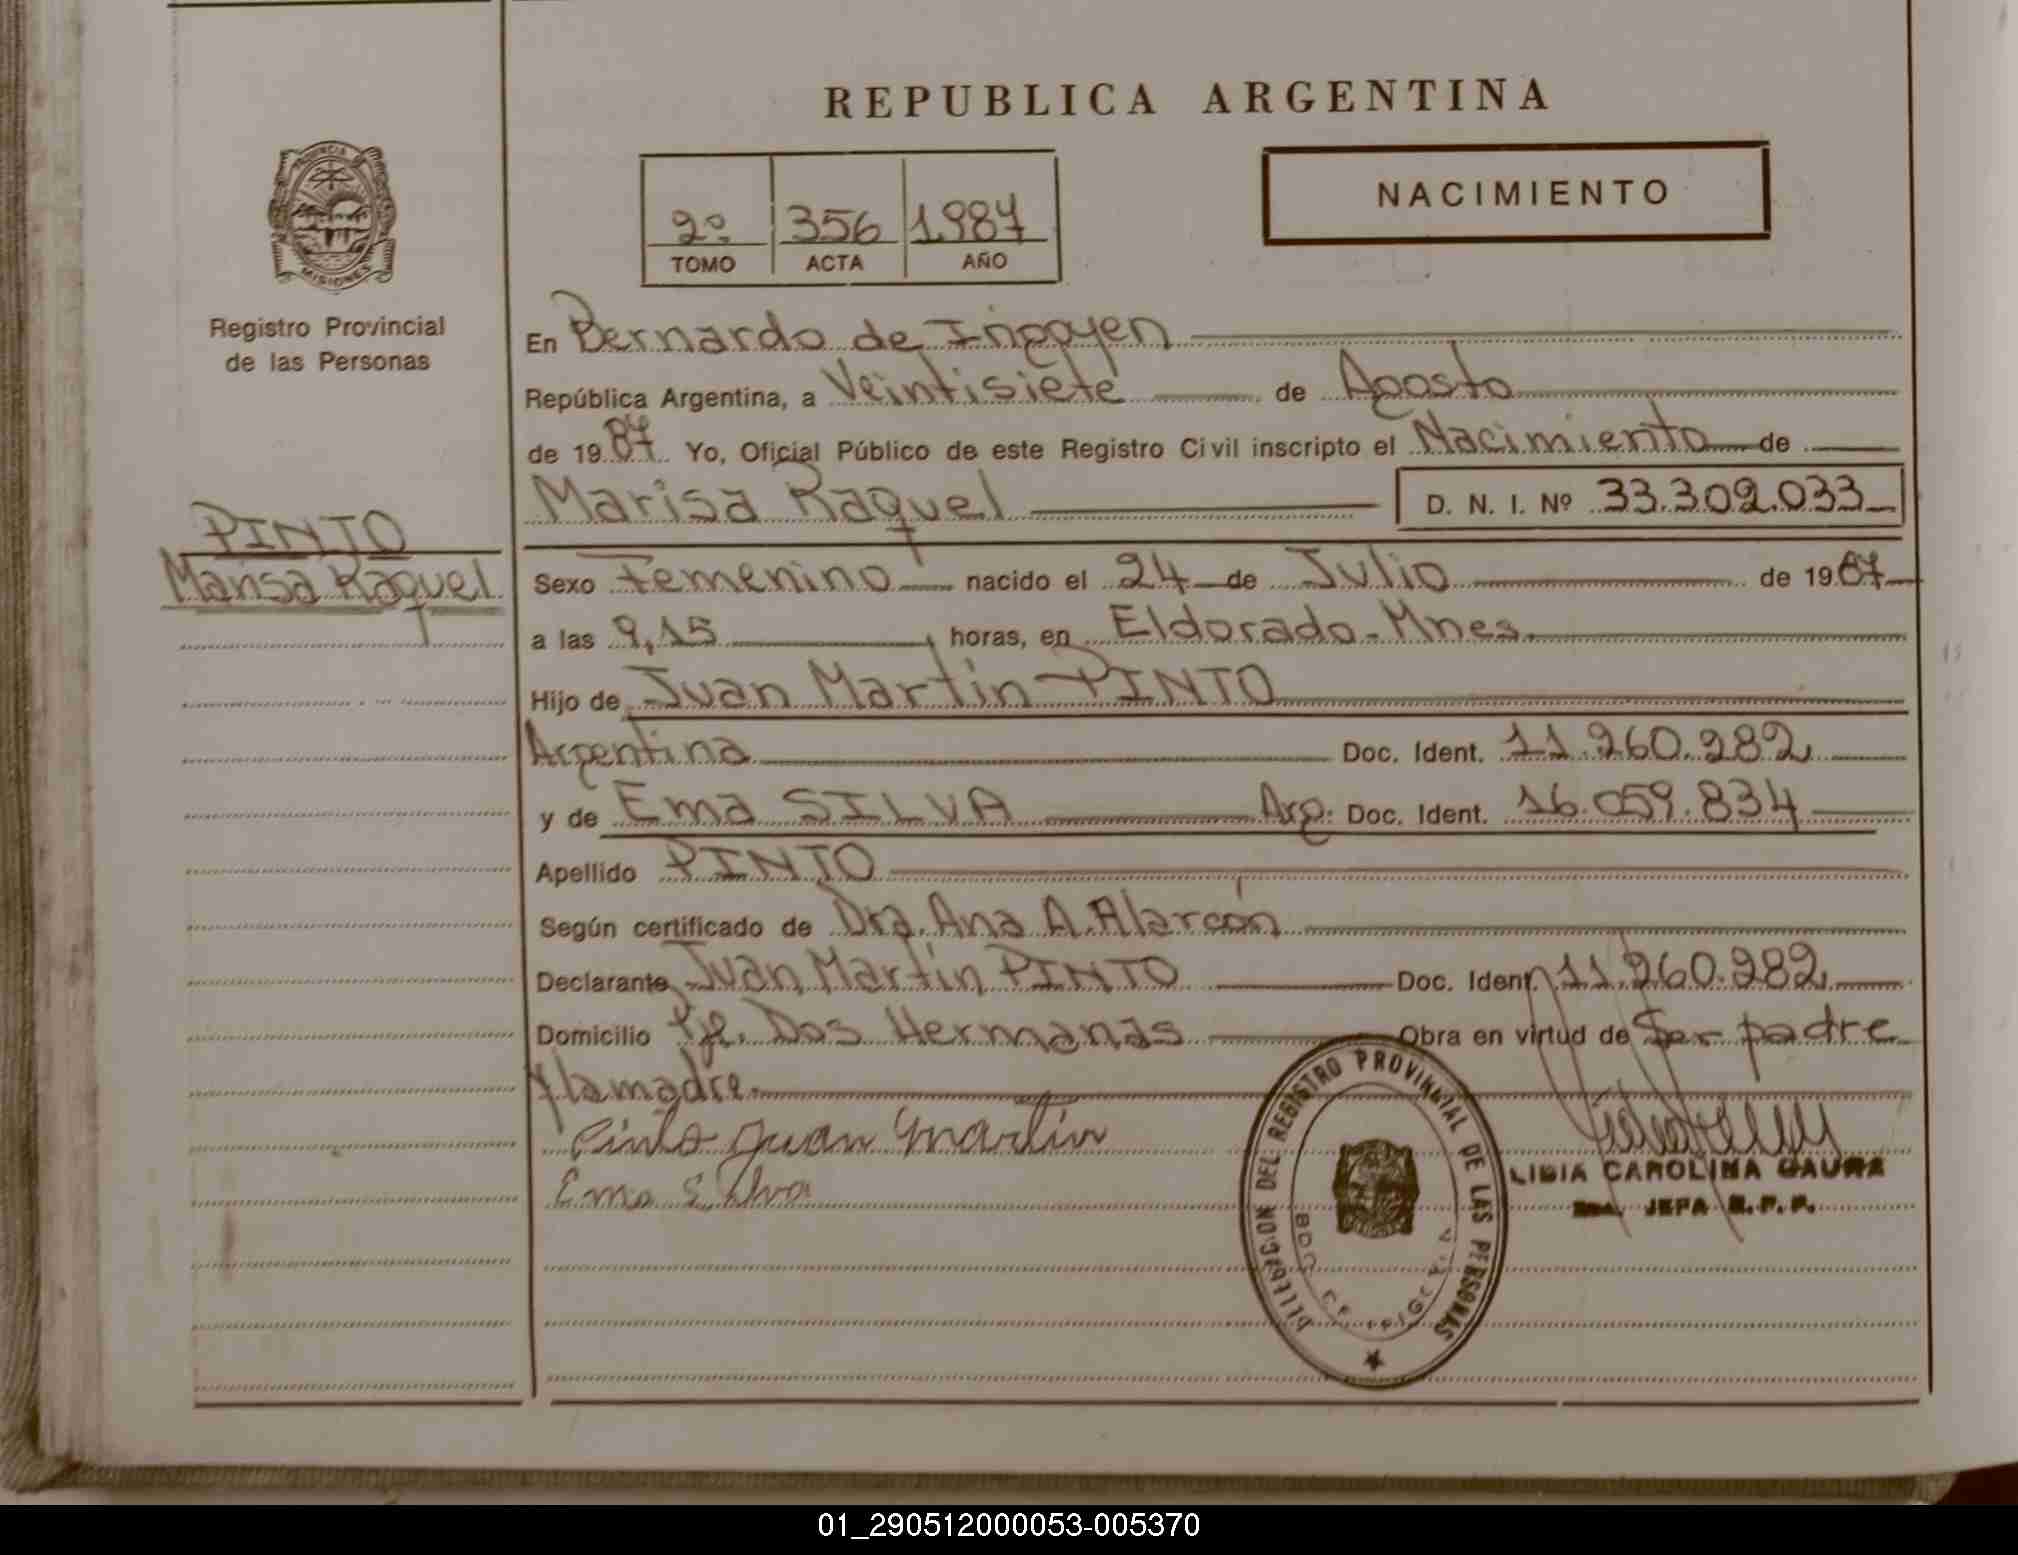 REPUBLICA ARGENTINA
NACIMIENTO
2º 356 1.987
TOMO ACTA AÑO
PROVINCIA DE
MISIONES
Registro Provincial
de las Personas
PINTO
Marisa Raquel
En Bernardo de Irigoyen
República Argentina, a Veintisiete de Agosto
de 1987 Yo, Oficial Público de este Registro Civil inscripto el Nacimiento de
Marisa Raquel D. N. I. Nº 33.302.033
Sexo Femenino nacido el 24 de Julio de 1987
a las 9,15 horas, en Eldorado-Mnes.
Hijo de Juan Martin PINTO
Argentina Doc. Ident. 11.260.282
y de Ema SILVA Arg: Doc. Ident. 16.059.834
Apellido PINTO
Según certificado de Dra. Ana A. Alarcón
Declarante Juan Martin PINTO Doc. Ident. 11.260.282
Domicilio Pje. Dos Hermanas Obra en virtud de Ser padre
y la madre.
Pinto Juan Martin
Ema Silva
DELEGACION DEL REGISTRO PROVINCIAL DE LAS PERSONAS
BDO. DE IRIGOYEN
LIDIA CAROLINA GAUNA
JEFA R.P.P.
01_290512000053-005370